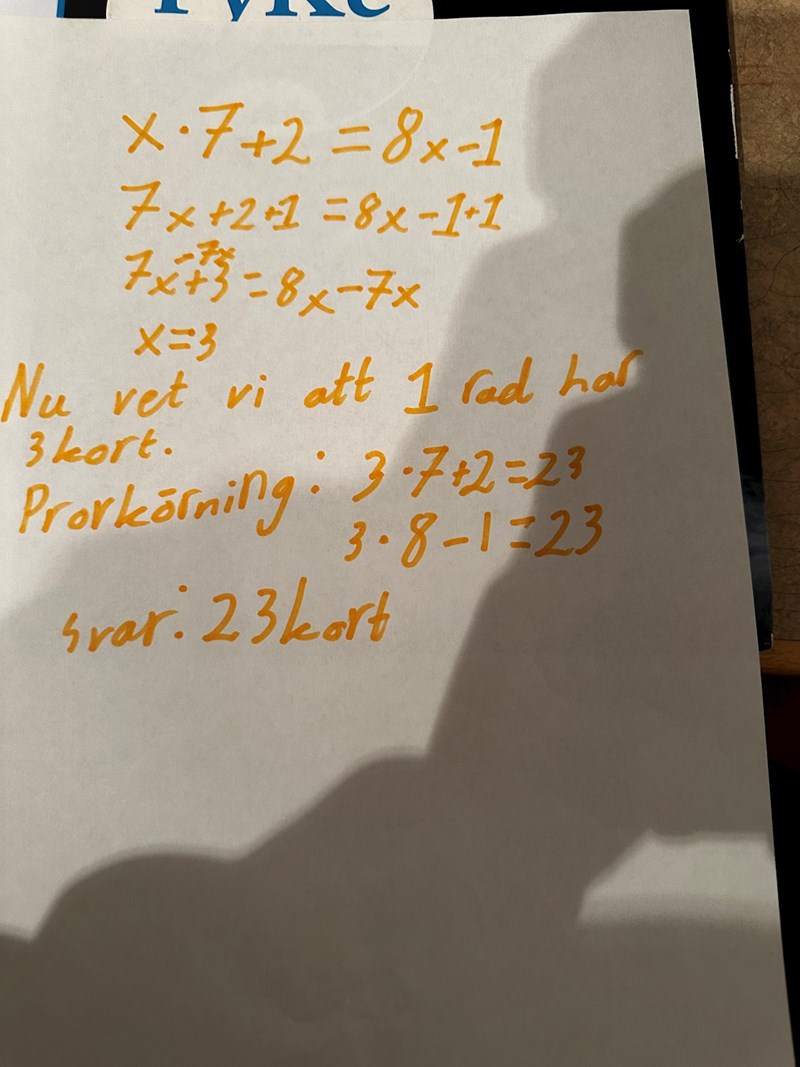 x·7+2=8x-1
7x+2+1=8x-1+1
7x-7x+3=8x-7x
x=3
Nu vet vi att 1 rad har
3kort.
Provkörning: 3·7+2=23
3·8-1=23
svar: 23kort